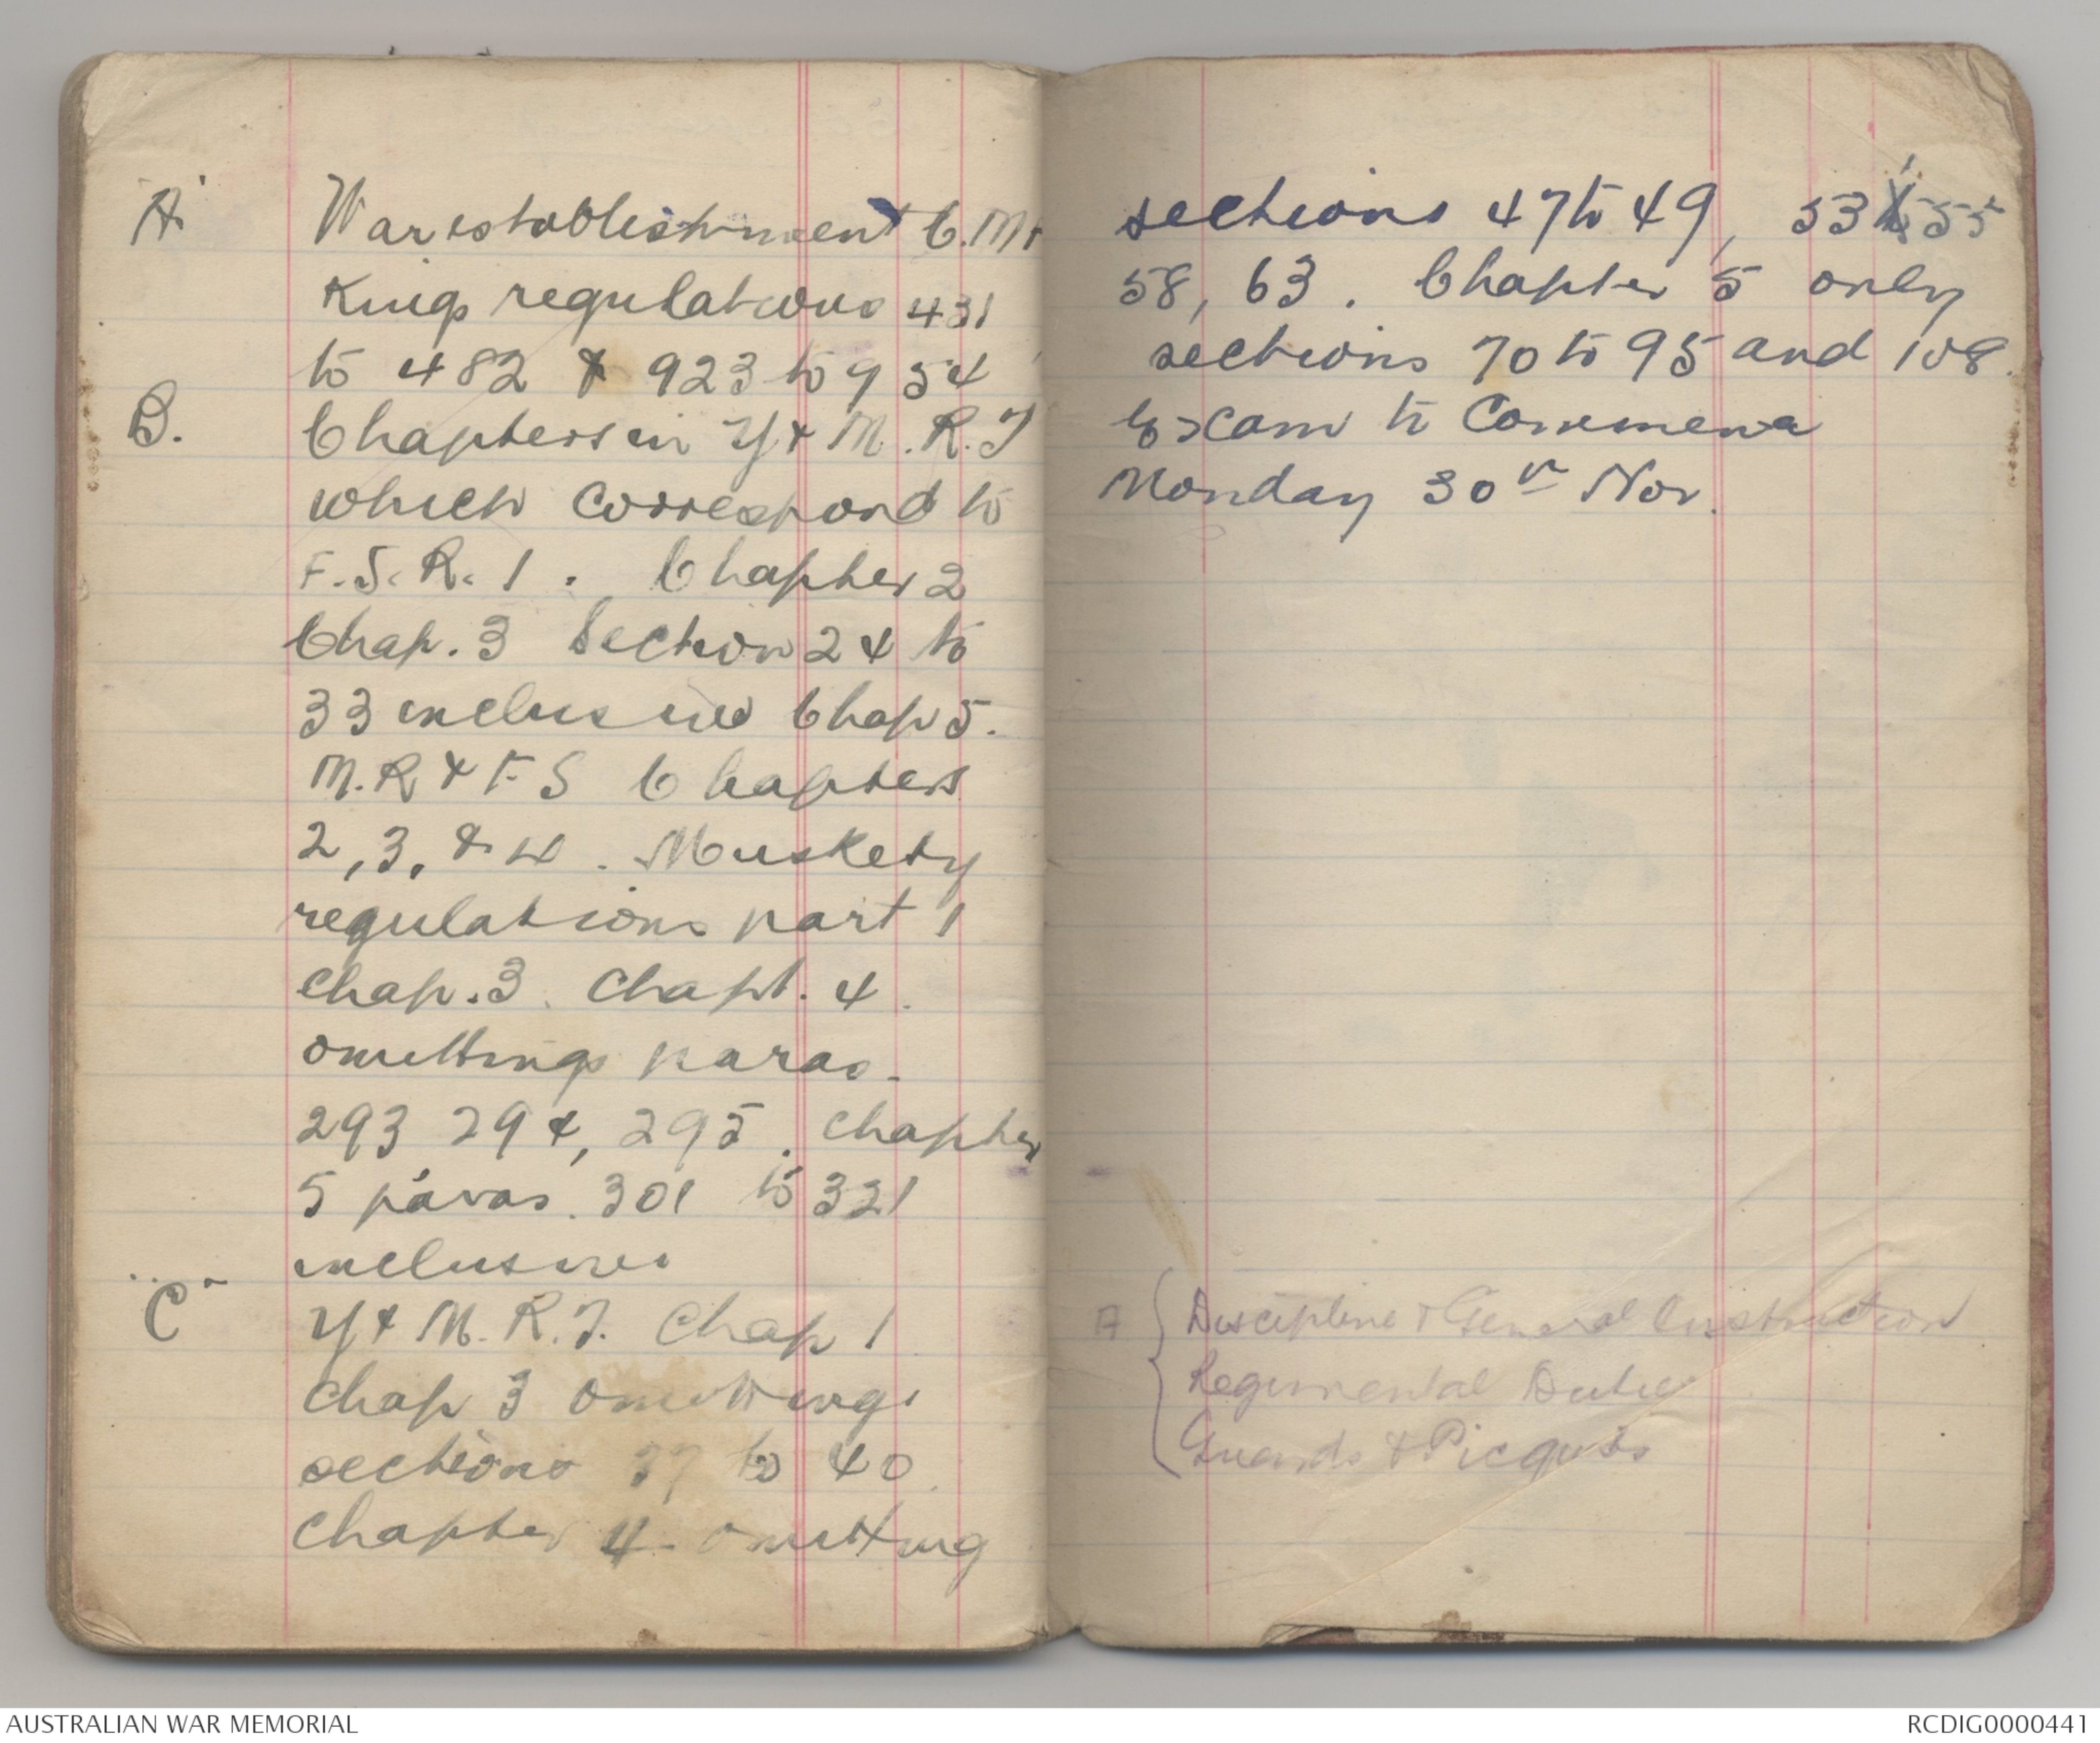 "A" War establishment C.M.
Kings regulations 431
to 482 & 923 to 954
B. Chapters in Y & M.R.T
which correspond to
F.S.R. 1. Chapter 2
Chap. 3 Section 24 to
33 inclusive Chap 5.
M.R & F S Chapters
2, 3, & 4. Muskety
regulations part 1
Chap. 3. Chapt. 4.
omittings paras.
293 294, 295. Chapter
5 paras. 301 to 321
inclusive
"C" Y & M.R.T. Chap 1
Chap 3 omittings
sections 37 to 40.
Chapter 4 - omitting
sections 47 to 49, 53 55
58, 63. Chapter 5 only
sections 70 to 95 and 108.
Exam to Commence
Monday 30th Nov.
A Discipline & General Instruction
Regimental Duties
Guards & Picquets
AUSTRALIAN WAR MEMORIAL
RCDIG0000441